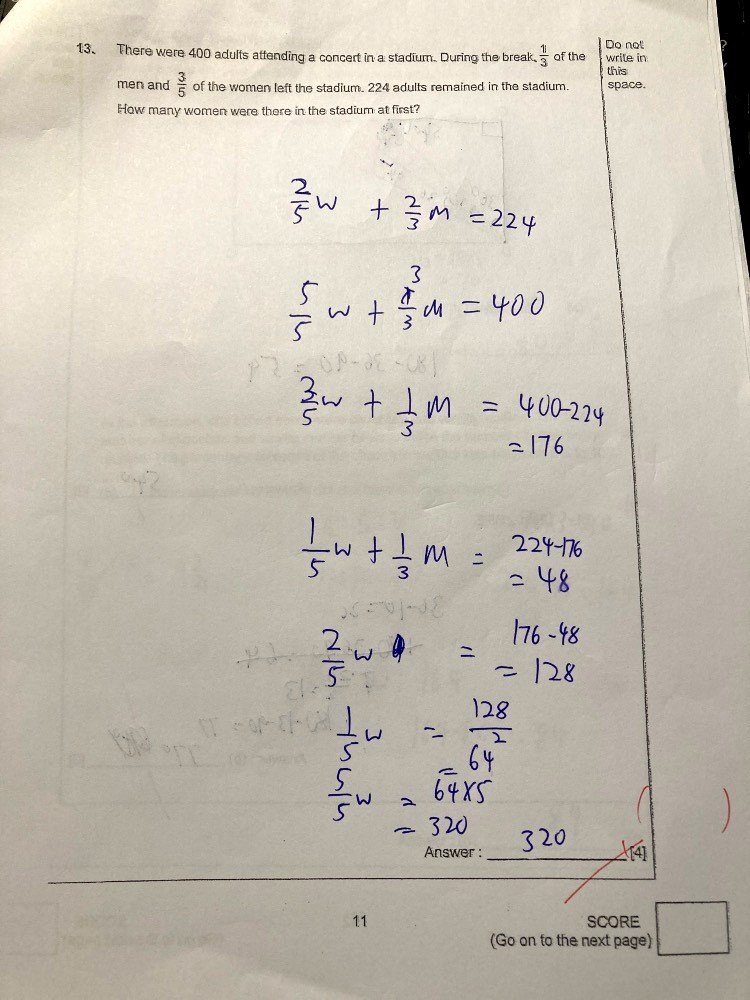 13. There were 400 adults attending a concert in a stadium. During the break, 1/3 of the
men and 3/5 of the women left the stadium. 224 adults remained in the stadium.
How many women were there in the stadium at first?
Do not
write in
this
space.
2/5 W + 2/3 M = 224
5/5 W + 3/3 M = 400
3/5 W + 1/3 M = 400-224
= 176
1/5 W + 1/3 M = 224-176
= 48
2/5 W = 176-48
= 128
1/5 W = 128/2
= 64
5/5 W = 64×5
= 320
Answer : 320 [4]
( )
11
SCORE
(Go on to the next page)